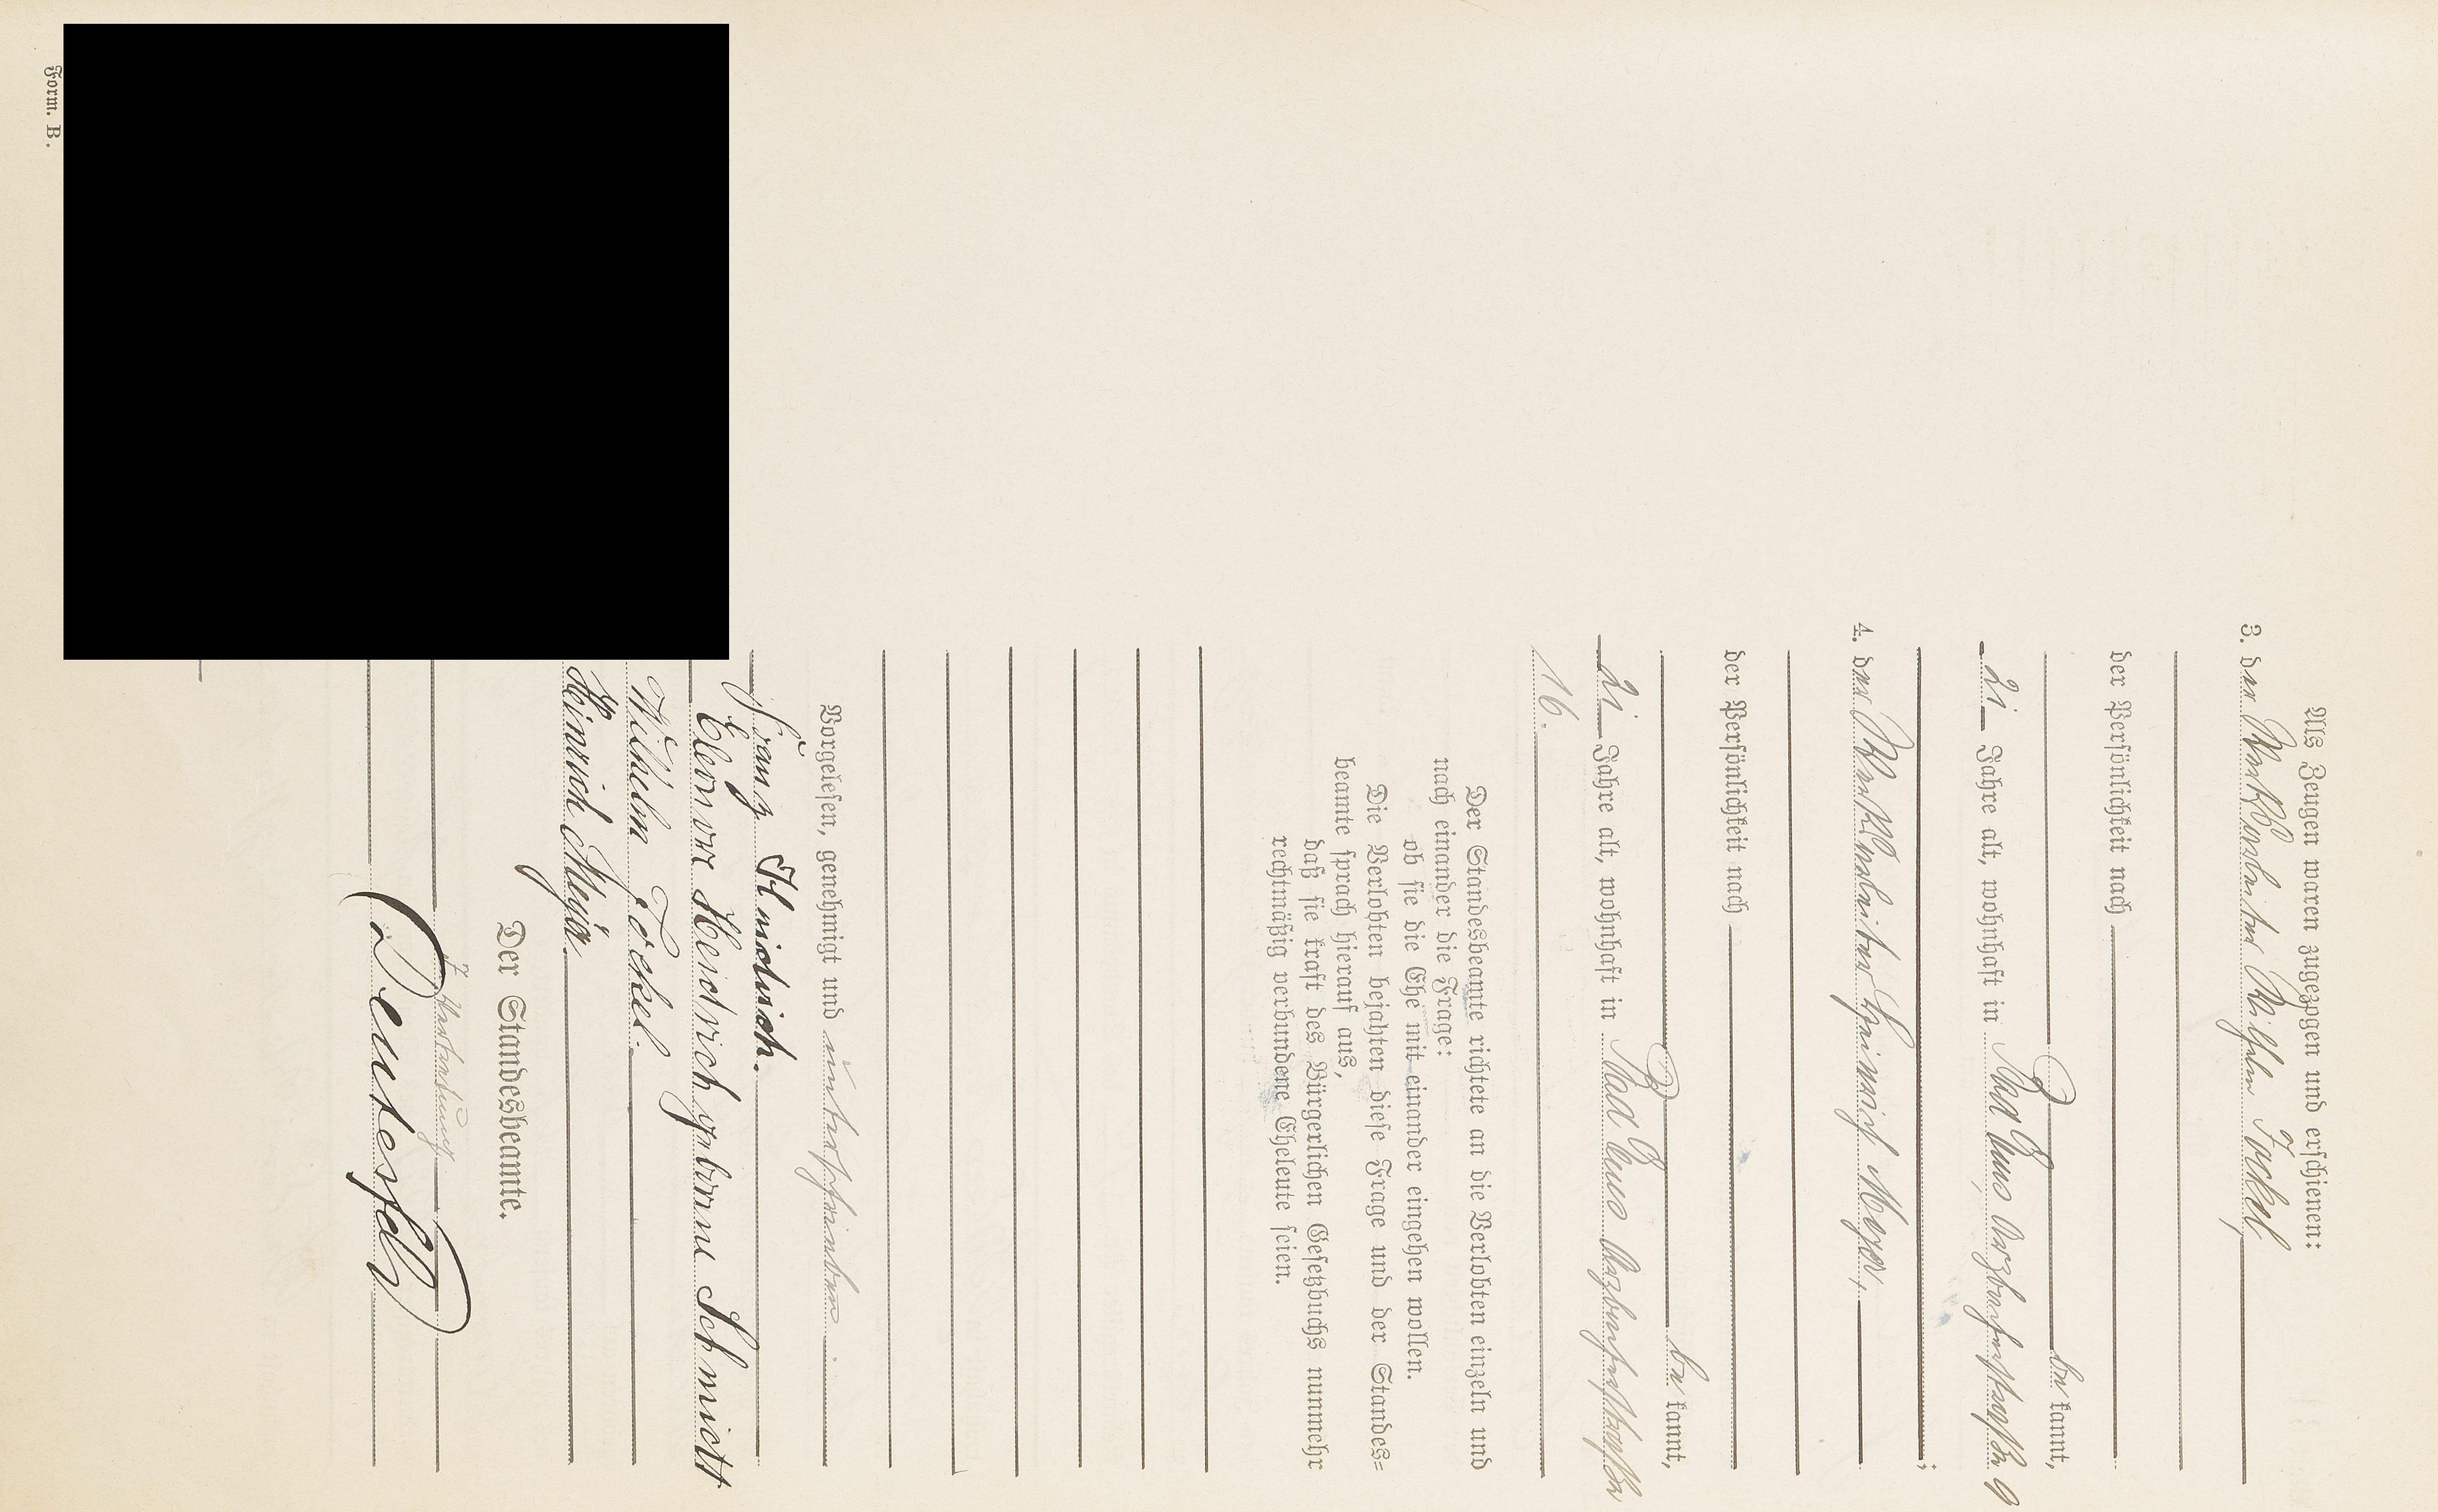 Als Zeugen waren zugezogen und erschienen:
3. der Werkarbeiter Wilhelm Fockel,
der Persönlichkeit nach
be kannt,
21 Jahre alt, wohnhaft in Bad Ems, 9
4. der Werkarbeiter Heinrich Meyer,
;
der Persönlichkeit nach
be kannt,
21 Jahre alt, wohnhaft in Bad Ems
16.
Der Standesbeamte richtete an die Verlobten einzeln und
nach einander die Frage:
ob sie die Ehe mit einander eingehen wollen.
Die Verlobten bejahten diese Frage und der Standes=
beamte sprach hierauf aus,
daß sie kraft des Bürgerlichen Gesetzbuchs nunmehr
rechtmäßig verbundene Eheleute seien.
Vorgelesen, genehmigt und unterschrieben.
Franz Heidrich.
Eleonore Heidrich geborene Schmidt
Wilhelm Fockel.
Heinrich Meyer.
Der Standesbeamte.
In Vertretung
Deutesfeld
Form. B.